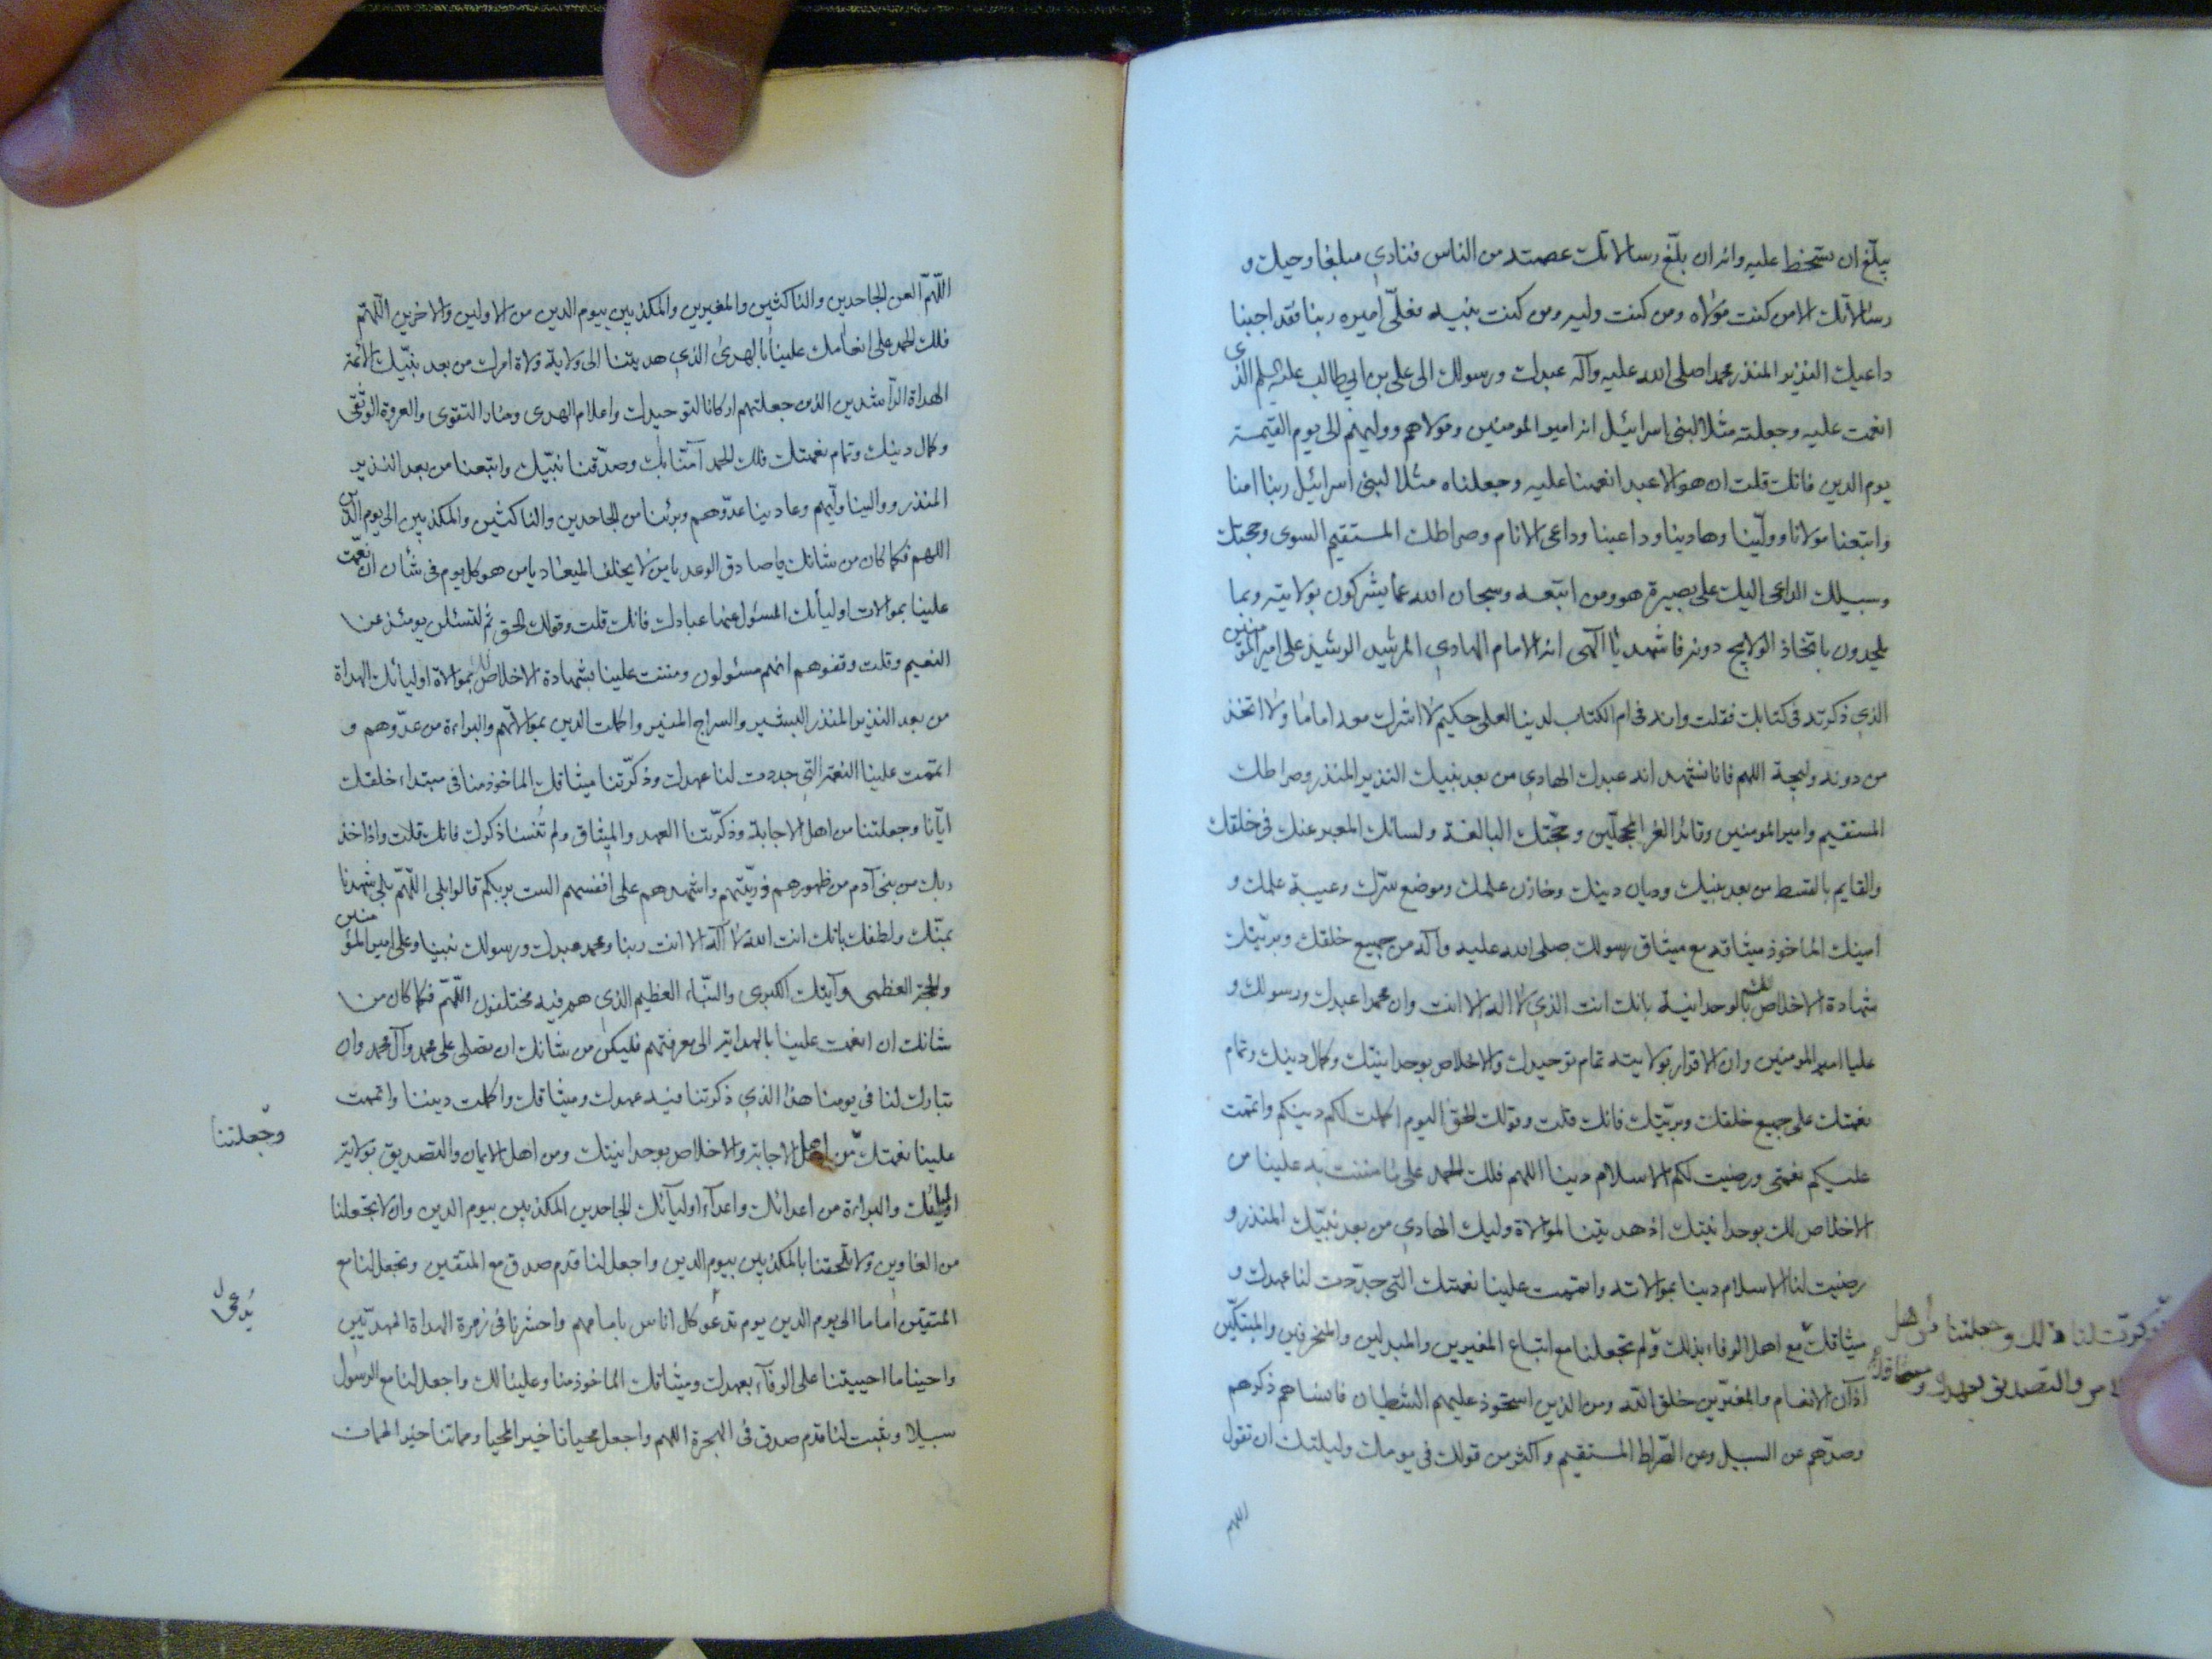 يبلّغ ان تسخط عليه وانه ان بلّغ رسالاتك عصمته من الناس فنادى مبلغا وحيك و
رسالاتك الا من كنت مولاه ومن كنت وليه ومن كنت نبيه فعلىّ اميره ربنا فقد اجبنا
داعيك النذير المنذر محمدا صلى الله عليه وآله عبدك ورسولك الى على بن ابي طالب عليه السلم الذى
انعمت عليه وجعلته مثلا لبنى اسرائيل انه امير المومنين ومولاهم ووليهم الى يوم القيمة
يوم الدين فانك قلت ان هو الا عبد انعمنا عليه وجعلناه مثلا لبنى اسرائيل ربنا امنا
واتبعنا مولانا وولّينا وهادينا وداعينا وداعى الانام وصراطك المستقيم السوى وحجتك
وسبيلك الداعى اليك على بصيرة هو ومن اتبعه وسبحان الله عما يشركون بولايته وبما
يلحدون باتخاذ الولايج دونه فاشهد يا الهى انه الامام الهادي المرشد الرشيد على امير المؤمنين
الذي ذكرته فى كتابك فقلت وانه فى ام الكتاب لدينا لعلى حكيم لا اشرك معه اماما ولا اتخذ
من دونه وليجة اللهم فانا نشهد انه عبدك الهادي من بعد نبيك النذير المنذر وصراطك
المستقيم وامير المومنين وقائد الغر المحجلّين وحجّتك البالغة ولسانك المعبر عنك فى خلقك
والقايم بالقسط من بعد نبيك وديان دينك وخازن علمك وموضع سّرك وعيبة علمك و
امينك المأخوذ ميثاقه مع ميثاق رسولك صلى الله عليه وآله من جميع خلقك وبريّتك
شهادة الاخلاص لك بالوحدانية بانك انت الذي لا اله الا انت وان محمدا عبدك ورسولك و
عليا امير المومنين وان الاقرار بولايته تمام توحيدك والاخلاص بوحدانيتك وكمال دينك وتمام
نعمتك على جميع خلقك وبريّتك فانك قلت وقولك الحق اليوم اكملت لكم دينكم واتممت
عليكم نعمتى ورضيت لكم الاسلام دينا اللهم فلك الحمد على ما مننت به علينا من
الاخلاص لك بوحدانيتك اذ هديتنا لموالاة وليك الهادي من بعد نبيّك المنذر و
رضيت لنا الاسلام دينا بموالاته واتممت علينا نعمتك التى جدّدت لنا عهدك و
ميثاقك مع اهل الوفاء بذلك ولم تجعلنا مع اتباع المغيرين والمبدلين والمنحرفين والمبتكّين
وذكّرتنا ذلك وجعلتنا من اهل
والتصديق بعهدك وميثاقك
آذان الانعام والمغيّرين خلق الله ومن الذين استحوذ عليهم الشيطان فانساهم ذكرهم
وصدّهم عن السبيل وعن الصّراط المستقيم واكثر من قولك فى يومك وليلتك ان تقول
اللهم
اللّهمّ العن الجاحدين والناكثين والمغيرين والمكذبين بيوم الدين من الاولين والاخرين اللّهمّ
فلك الحمد على انعامك علينا بالهدى الذي هديتنا الى ولاية ولاة امرك من بعد نبيّك الائمة
الهداة الرّاشدين الذين جعلتهم اركانا لتوحيدك واعلام الهدى ومنار التقوى والعروة الوثقى
وكمال دينك وتمام نعمتك فلك الحمد آمنّا بك وصدّقنا نبيّك واتبعنا من بعد النذير
المنذر ووالينا وليّهم وعادينا عدوّهم وبرئنا من الجاحدين والناكثين والمكذبين الى يوم الدّين
اللهم فكما كان من شانك يا صادق الوعد يا من لا يخلف الميعاد يا من هو كل يوم فى شأن ان انعمت
علينا بموالات اوليائك المسئول عنها عبادك فانك قلت وقولك الحق ثم لتسئلن يومئذ عن
النعيم وقلت وقفوهم انهم مسئولون ومننت علينا بشهادة الاخلاص لك بموالاة اوليائك الهداة
من بعد النذير المنذر البشير والسراج المنير واكملت الدين بموالاتهم والبراءة من عدّوهم و
اتممت علينا النعمة التي جددت لنا عهدك وذكّرتنا ميثاقك الماخوذ منا فى مبتداء خلقك
ايّانا وجعلتنا من اهل الاجابة وذكّرتنا العهد والميثاق ولم تُنسنا ذكرك فانك قلت واذ اخذ
ربك من بنى آدم من ظهورهم ذريّتهم واشهدهم على انفسهم الست بربكم قالوا بلى اللّهمّ بلى شهدنا
بمنّك ولطفك بانك انت الله لا اله الا انت ربنا ومحمد عبدك ورسولك نبينا وعلى امير المؤمنين
والحجة العظمى وآيتك الكبرى والنّباء العظيم الذي هم فيه مختلفون اللّهمّ فكما كان من
شانك ان انعمت علينا بالهداية الى معرفتهم فليكن من شانك ان تصلى على محمد وآل محمد وان
تبارك لنا فى يومنا هذا الذي ذكرتنا فيه عهدك وميثاقك واكملت ديننا واتممت
علينا نعمتك من اهل الاجابة والاخلاص بوحدانيتك ومن اهل الايمان والتصديق بولاية
وجّعلتنا
اوليائك والبراءة من اعدائك واعدآء اوليآئك الجاحدين المكذبين بيوم الدين وان لا تجعلنا
من الغاوين ولا تلحقنا بالمكذبين بيوم الدين واجعل لنا قدم صدق مع المتقين وتجعل لنا مع
المتقين اماما الى يوم الدين يوم تدعو كل اناس بامامهم واحشرنا فى زمرة الهداة المهديّين
يُدعى
واحينا ما احييتنا على الوفآء بعهدك وميثاقك الماخوذ منا وعلينا لك واجعل لنا مع الرسول
سبيلا وثبت لنا قدم صدق فى الهجرة اللهم واجعل محيانا خير المحيا ومماتنا خير الممات